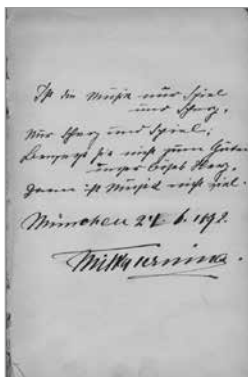 Ist die Musik nur Spiel
und Scherz,
Nur Scherz und Spiel;
Bewegt sie nicht zum Guten
unser böses Herz,
Dann ist Musik nicht viel.
München 27 6. 1892.
Milka Ternina.